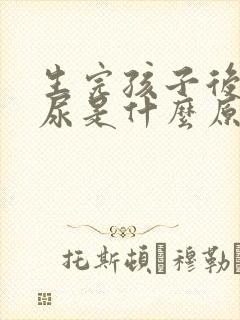 生完孩子後
尿是什麼原
托斯頓 穆勒